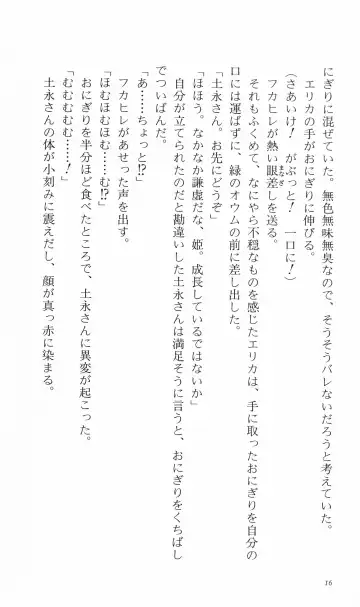 にぎりに混ぜていた。無色無味無臭なので、そうそうバレないだろうと考えていた。
エリカの手がおにぎりに伸びる。
（さあいけ！　がぶっと！　一口に！）
フカヒレが熱い眼差しを送る。
まなざ
それもふくめて、なにやら不穏なものを感じたエリカは、手に取ったおにぎりを自分の
口には運ばずに、緑のオウムの前に差し出した。
「土永さん。お先にどうぞ」
「ほほう。なかなか謙虚だな、姫。成長しているではないか」
自分が立てられたのだと勘違いした土永さんは満足そうに言うと、おにぎりをくちばし
でついばんだ。
「あ……ちょっと⁉」
フカヒレがあせった声を出す。
「ほむほむほむ……む⁉」
おにぎりを半分ほど食べたところで、土永さんに異変が起こった。
「むむむむむ……！」
土永さんの体が小刻みに震えだし、顔が真っ赤に染まる。
16